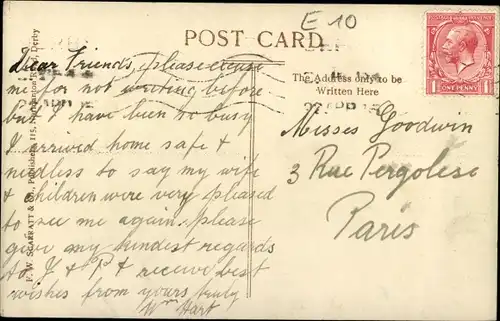 E 10
POST CARD
Dear Friends, please excuse
me for not writing before
but I have been so busy
I arrived home safe &
needless to say my wife
& children were very pleased
to see me again. please
give my kindest regards
to J & P, & receive best
wishes from yours truly
Wm Hart
The Address only to be
Written Here
ONE PENNY
Misses Goodwin
3 Rue Pergolese
Paris
F. W. SCARRATT & Co., Publishers, 115, Derby